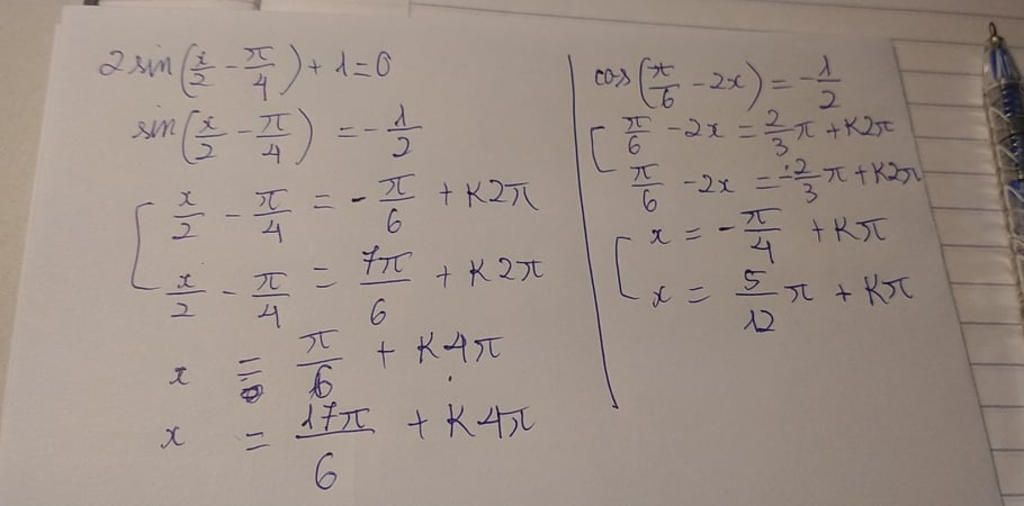 2 sin(x/2 - π/4) + 1 = 0
sin(x/2 - π/4) = -1/2
[ x/2 - π/4 = -π/6 + K2π
x/2 - π/4 = 7π/6 + K2π
x = π/6 + K4π
x = 17π/6 + K4π
cos(π/6 - 2x) = -1/2
[ π/6 - 2x = 2/3 π + K2π
π/6 - 2x = -2/3 π + K2π
[ x = -π/4 + Kπ
x = 5/12 π + Kπ